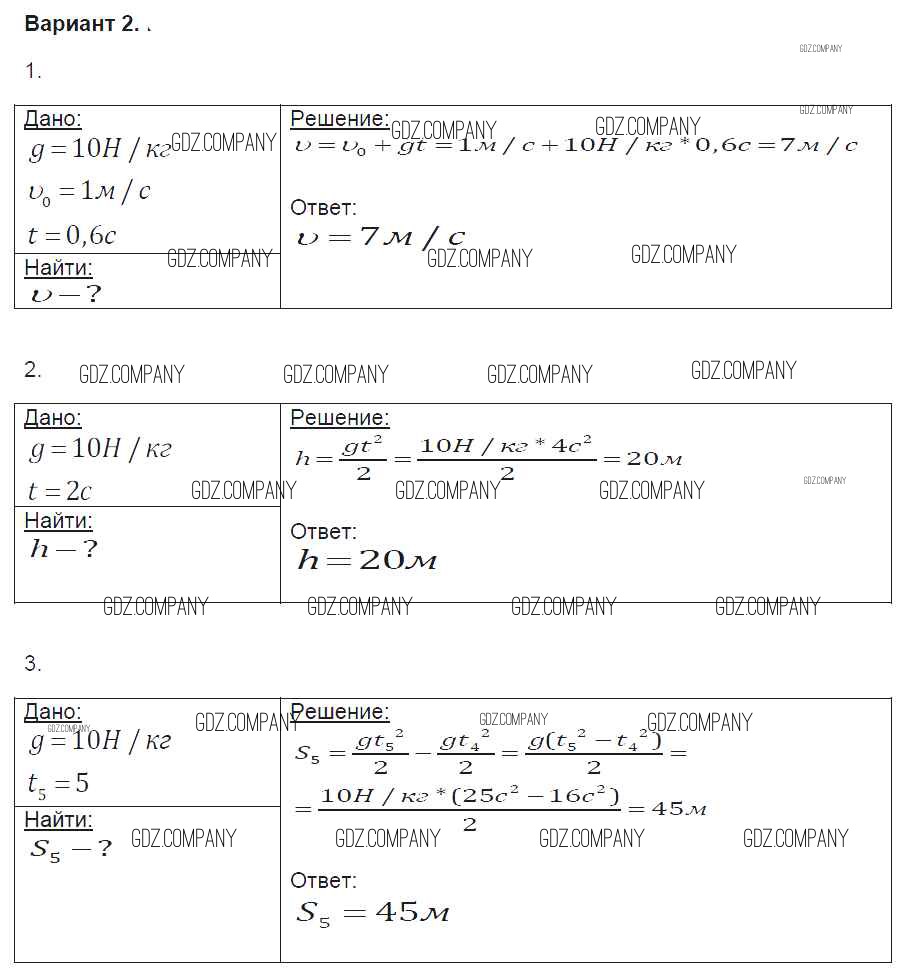 Вариант 2.
GDZ.COMPANY
1.
Дано:
g = 10Н / кг
υ₀ = 1м / с
t = 0,6с
Найти:
υ – ?
Решение:
υ = υ₀ + gt = 1м / с + 10Н / кг * 0,6с = 7м / с
Ответ:
υ = 7м / с
GDZ.COMPANY GDZ.COMPANY GDZ.COMPANY GDZ.COMPANY
GDZ.COMPANY GDZ.COMPANY GDZ.COMPANY
2.
GDZ.COMPANY GDZ.COMPANY GDZ.COMPANY GDZ.COMPANY
Дано:
g = 10Н / кг
t = 2с
Найти:
h – ?
Решение:
h = gt²/2 = 10Н / кг * 4с²/2 = 20м
Ответ:
h = 20м
GDZ.COMPANY GDZ.COMPANY GDZ.COMPANY GDZ.COMPANY
GDZ.COMPANY GDZ.COMPANY GDZ.COMPANY GDZ.COMPANY
3.
Дано:
g = 10Н / кг
t₅ = 5
Найти:
S₅ – ?
Решение:
S₅ = gt₅²/2 – gt₄²/2 = g(t₅² – t₄²)/2 =
= 10Н / кг * (25с² – 16с²)/2 = 45м
Ответ:
S₅ = 45м
GDZ.COMPANY GDZ.COMPANY GDZ.COMPANY GDZ.COMPANY
GDZ.COMPANY GDZ.COMPANY GDZ.COMPANY GDZ.COMPANY